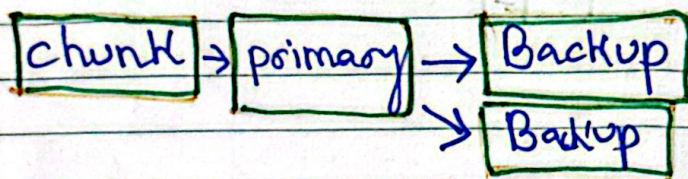 chunk primary Backup
Backup